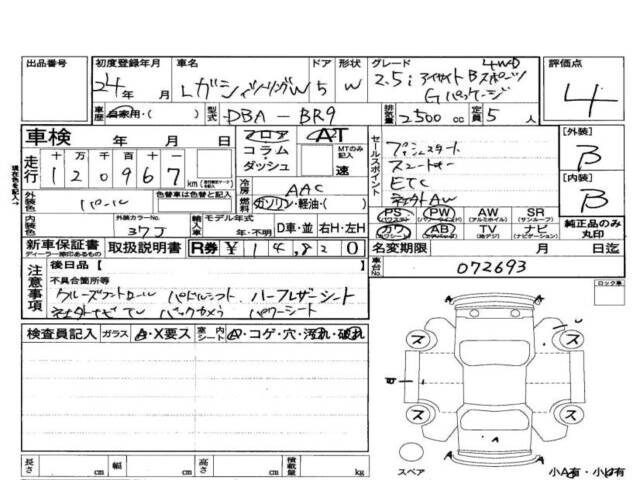 出品番号 初度登録年月 車名 ドア 形状 グレード 評価点
24年 月 レガシィツーリングW 5 W 2.5i アイサイト Bスポーツ 4WD
Gパッケージ 4
車歴 自家用・( ) 型式 DBA-BR9 排気量 2500 cc 定員 5人
車検 年 月 日 フロア AT セールスポイント プッシュスタート [外装]
コラム・ダッシュ MTのみ記入 速 スマートキー B
現在色を記入→ 走行 十万千百十一 120967 km 冷房 AAC ETC [内装]
外装色 パール 色替車は色替色 燃料 ガソリン・軽油・( ) 社外AW B
内装色 外装カラーNo. 37J 輸入車 モデル年式 年・不明 D車・並 右H・左H
PS(パワステ) PW(パワーウインドウ) AW(アルミホイル) SR(サンルーフ)
カワ(カワシート) AB(エアバッグ) TV(地デジ) ナビ(ナビゲーション) 純正品のみ丸印
新車保証書 ディーラー捺印あるもの 取扱説明書 R券 ¥14,820 名変期限 月 日迄
注意事項 後日品【 】 車台No 072693
不具合箇所等 ロック車
クルーズコントロール パドルシフト ハーフレザーシート
社外ナビTV バックカメラ パワーシート
検査員記入 ガラス A・X要ス 室内シート A・コゲ・穴・汚れ・破れ
ス ス
ス ス
A
A
長さ cm 幅 cm 高さ cm 積載量 kg スペア 小A有・小U有